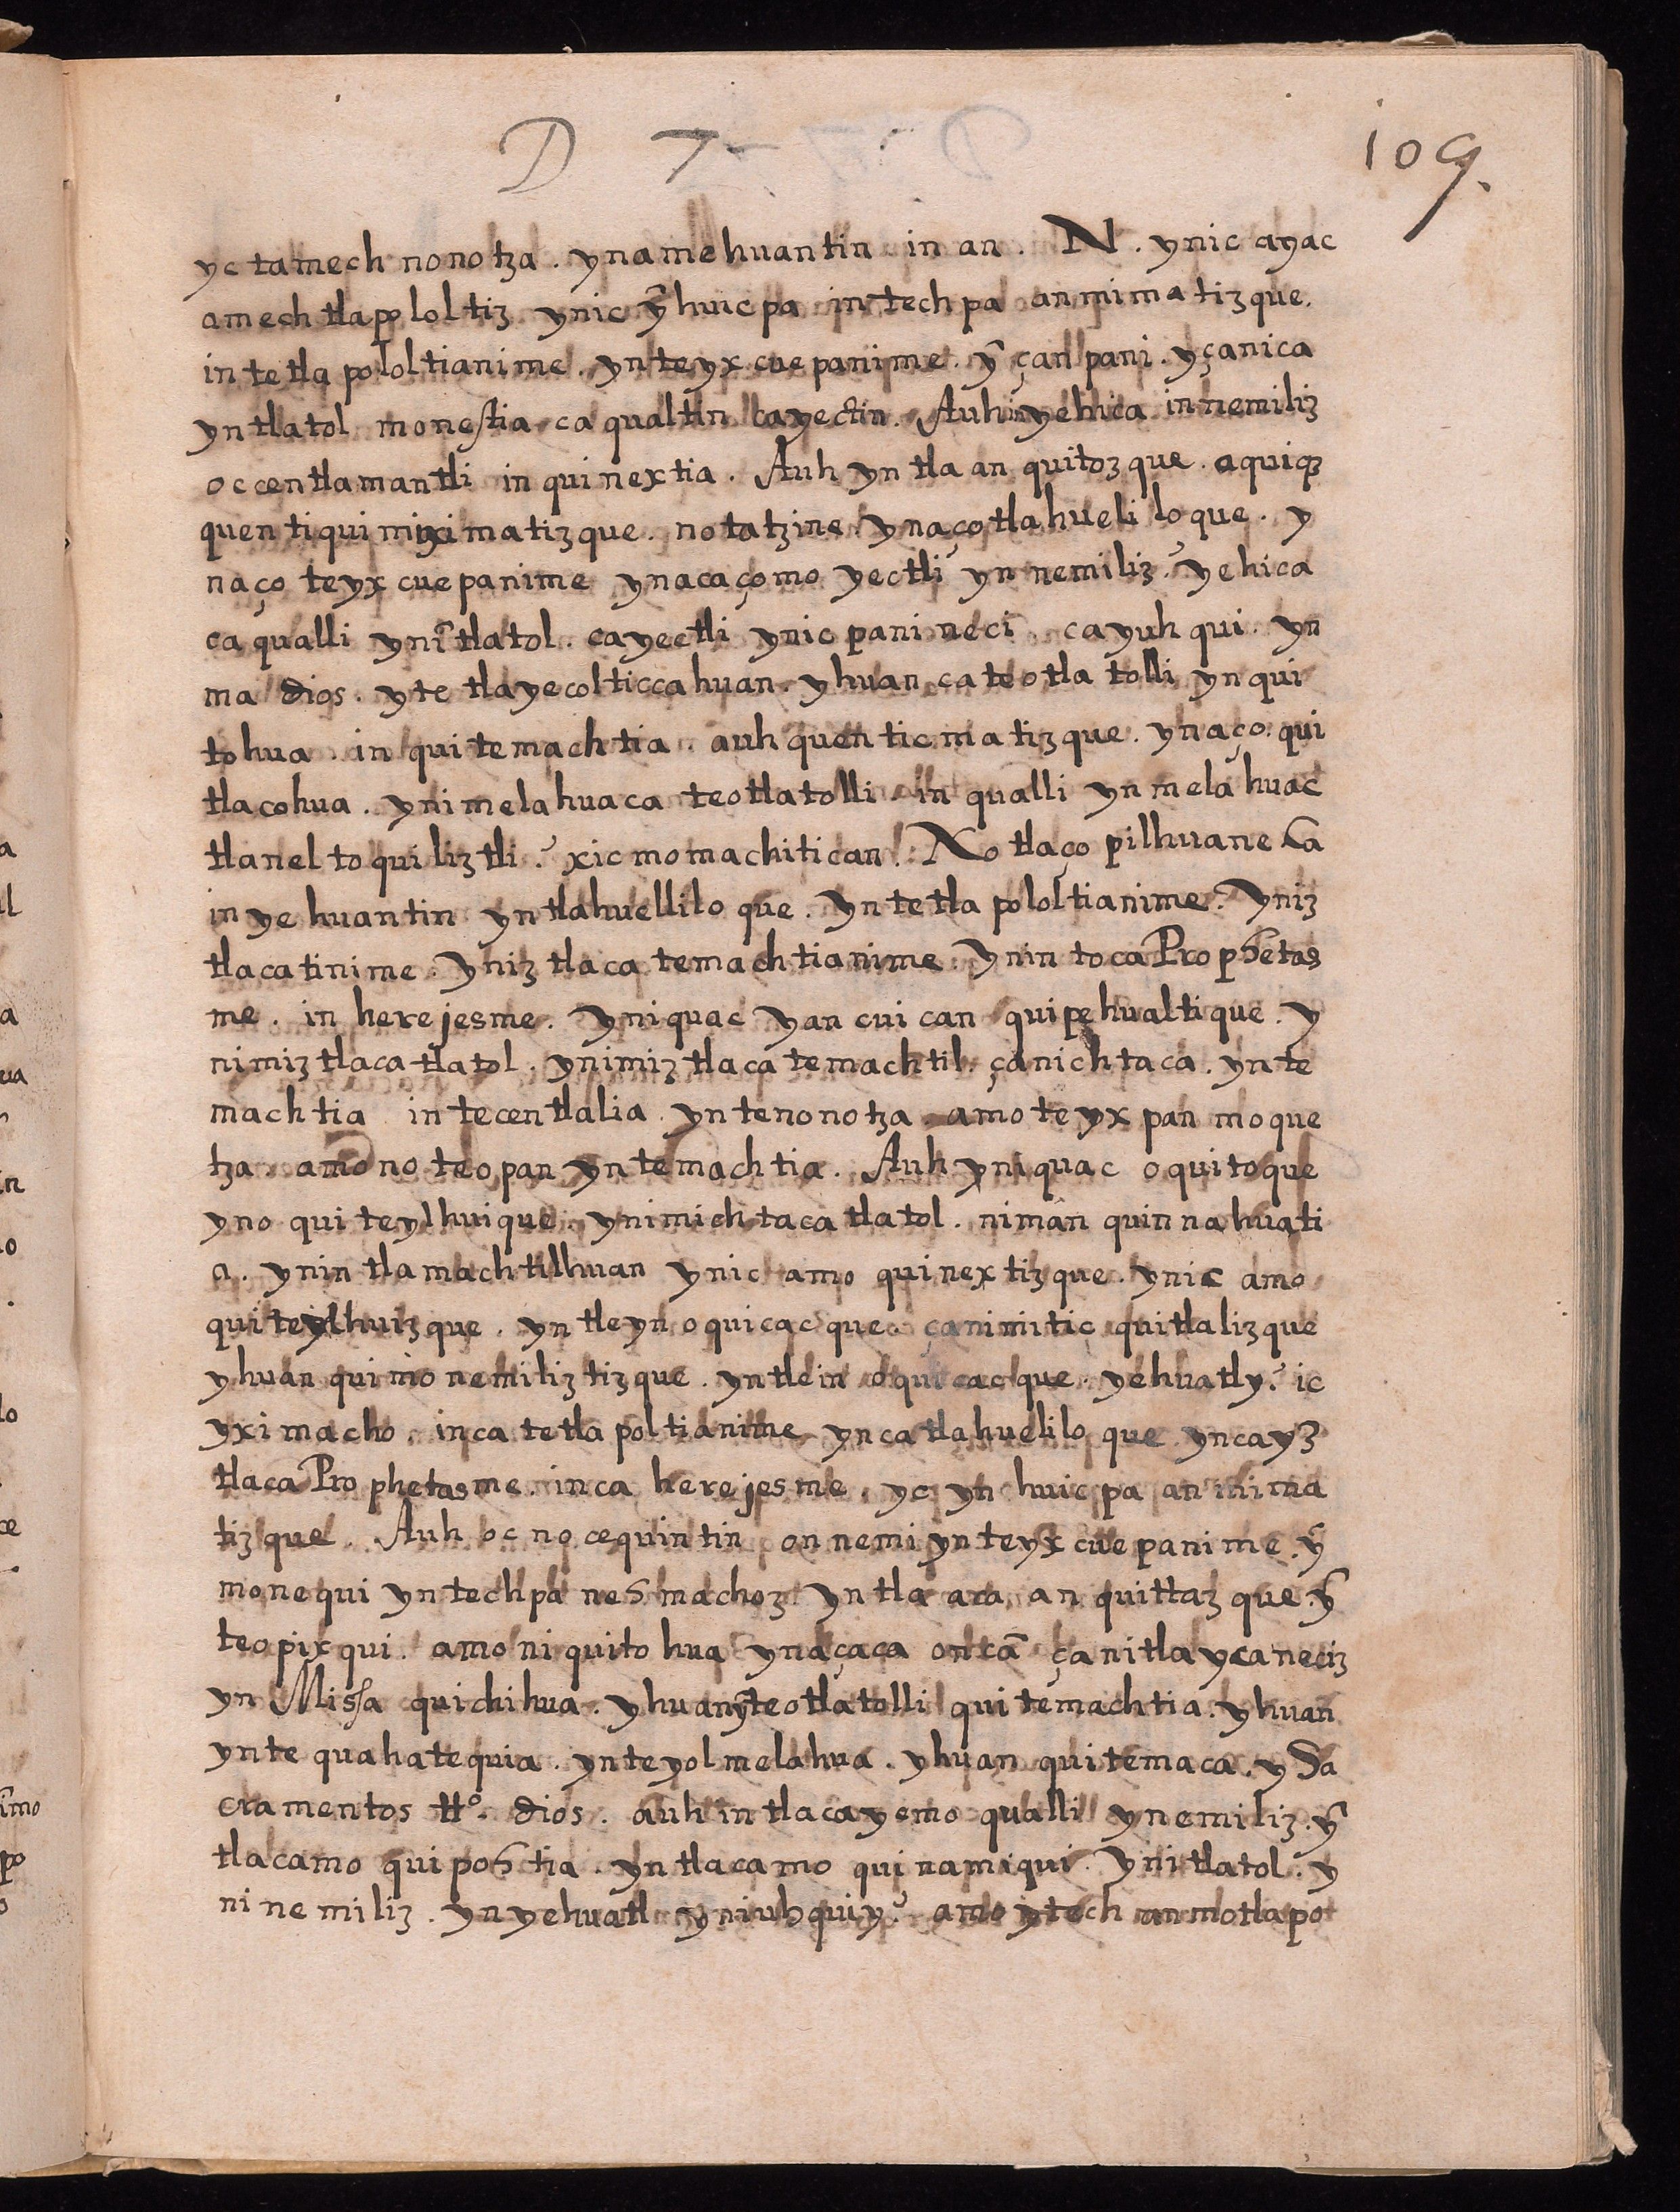 D 7
109.
yc tamech nonotza . ynamehuantin in an . N . ynic ayac
amech tlapololtiz ynic ỹ huic pa intech pa anmimatizque.
in tetlapololtianime . ynteyx cuepanime . ỹ çan pani . yçanica
yntlatol monestia ca qualtin cayectin . Auh yehica innemiliz
occentlamantli in quinextia . Auh yntla an quitozque . aquiqz
quen tiquimiximatizque . notatzine ynaço tlahueliloque . y
naço teyx cuepanime ynacaçomo yectli yn nemiliz? yehica
ca qualli ynĩ tlatol . cayectli ynic pani neci . cayuh qui . yn
ma dios . yte tlayecolticcahuan . yhuan ca teotlatolli ynqui
tohua . in quitemachtia . auh quen ticmatizque . ynaço qui
tlacohua . ynimelahuaca teotlatolli . in qualli ynmelahuac
tlaneltoquiliztli? xicmomachitican! Notlaço pilhuane ca
in yehuantin yntlahuelliloque . yn tetlapololtianime? yniz
tlacatinime . yniz tlaca temachtianime ynin toca Prophetas
me . in herejesme . yniquac yancuican quipehualtique . y
nimiz tlacatlatol . ynimiz tlaca temachtil . çanichtaca . ynte
machtia in tecentlalia . yntenonotza amo teyxpan moque
tza . amo no teopan yntemachtia . Auh yniquac oquitoque
yno quiteylhuique . ynimichtacatlatol . niman quinnahuati
a . ynin tlamachtilhuan ynic amo quinextizque . ynic amo
quiteylhuizque . yntleyn oquicacque . çanimitic quitlalizque
yhuan quimonemiliztizque . yntlein oquicacque . yehuatly? ic
yximacho . inca tetlapoltianime yncatlahueliloque yncayz
tlaca Prophetasme . inca herejesme . yc yn huicpa anmima
tizque . Auh oc no cequintin onnemi ynteyx cuepanime . ỹ
monequi yntechpa nehmachoz yntla aca an quittazque . ỹ
teopixqui . amo niquitohua ynaçaca oncã çanitlaycaneciz
yn Missa quichihua . yhuanỹteotlatolli quitemachtia . yhuan
ynte quahatequia . ynteyolmelahua . yhuan quitemaca . y Sa
cramentos ttº. dios . auh intlacayemo qualli ynemiliz . ỹ
tlacamo quipohtia . yntlacamo quinamiqui . ynitlatol . y
ninemiliz . ynyehuatl yniuhquiy? amo ytech anmotlapo